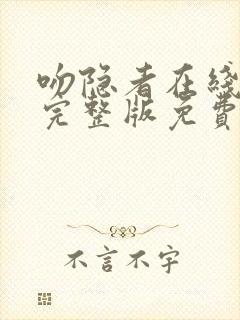 吻隐者在綫
完整版免費
不言不字